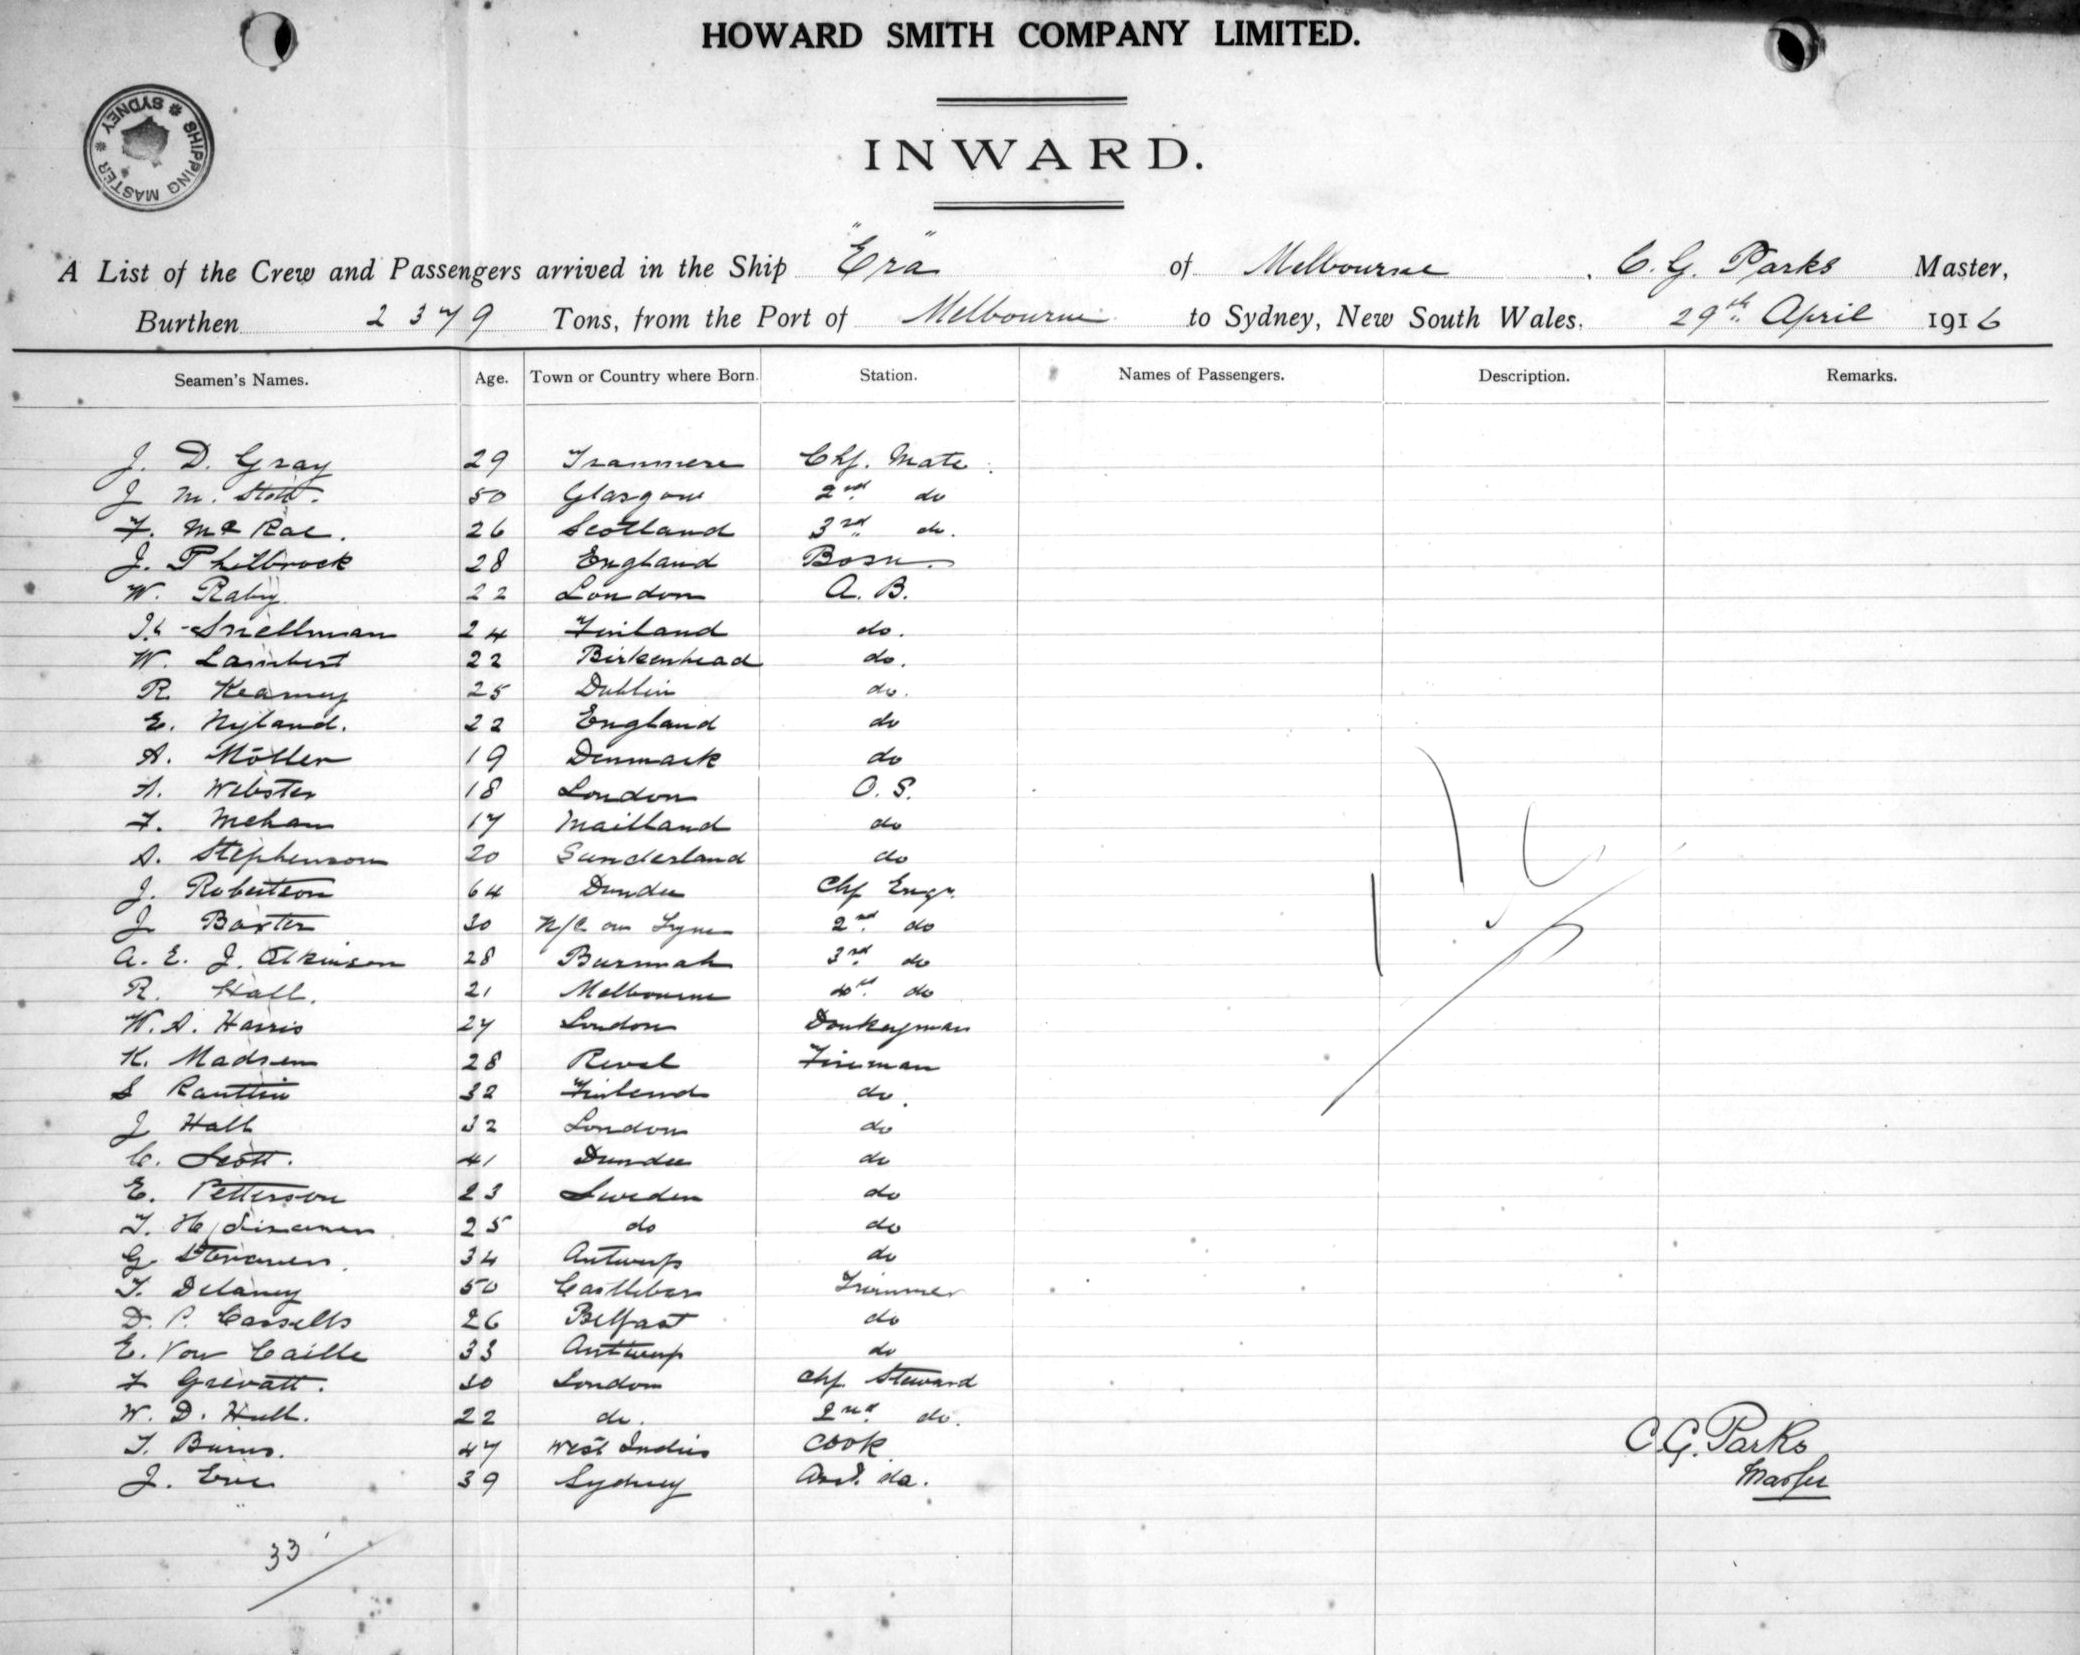 HOWARD SMITH COMPANY LIMITED.
INWARD.
SHIPPING MASTER * SYDNEY *
A List of the Crew and Passengers arrived in the Ship "Era" of Melbourne, C. G. Parks Master,
Burthen 2379 Tons, from the Port of Melbourne to Sydney, New South Wales, 29th April 1916
Seamen's Names. Age. Town or Country where Born. Station. Names of Passengers. Description. Remarks.
J. D. Gray 29 Tranmere Chf. Mate
J M. Stott. 50 Glasgow 2nd do
F. McRae. 26 Scotland 3rd do.
J. Philbrock 28 England Bosn.
W. Raby 22 London A. B.
Snellman 24 Finland do.
W. Lambert 22 Birkenhead do.
R. Kearney 25 Dublin do.
E. Nyland. 22 England do
A. Möller 19 Denmark do
A. Webster 18 London O. S.
F. Mehan 17 Maitland do
A. Stephenson 20 Sunderland do
J. Robertson 64 Dundee Chf Engr.
J Baxter 30 N/C on Tyne 2nd do
A. E. J. Atkinson 28 Burmah 3rd do
R. Hall. 21 Melbourne 4th do
W. A. Harris 27 London Donkeyman
K. Madsen 28 Revel Fireman
S Rauttin 32 Finland do.
J Hall 32 London do
C. Scott. 41 Dundee do
E. Petterson 23 Sweden do
T. 25 do do
G. 34 Antwerp do
T. Delaney 50 Castlebar Trimmer
D. P. Cassells 26 Belfast do
E. Van Caille 33 Antwerp do
F Grevatt. 30 London Chf. Steward
W. D. Hull. 22 do. 2nd do.
T. Burns. 47 West Indies Cook
J. Eve 39 Sydney Asst. do.
C. G. Parks
Master
33